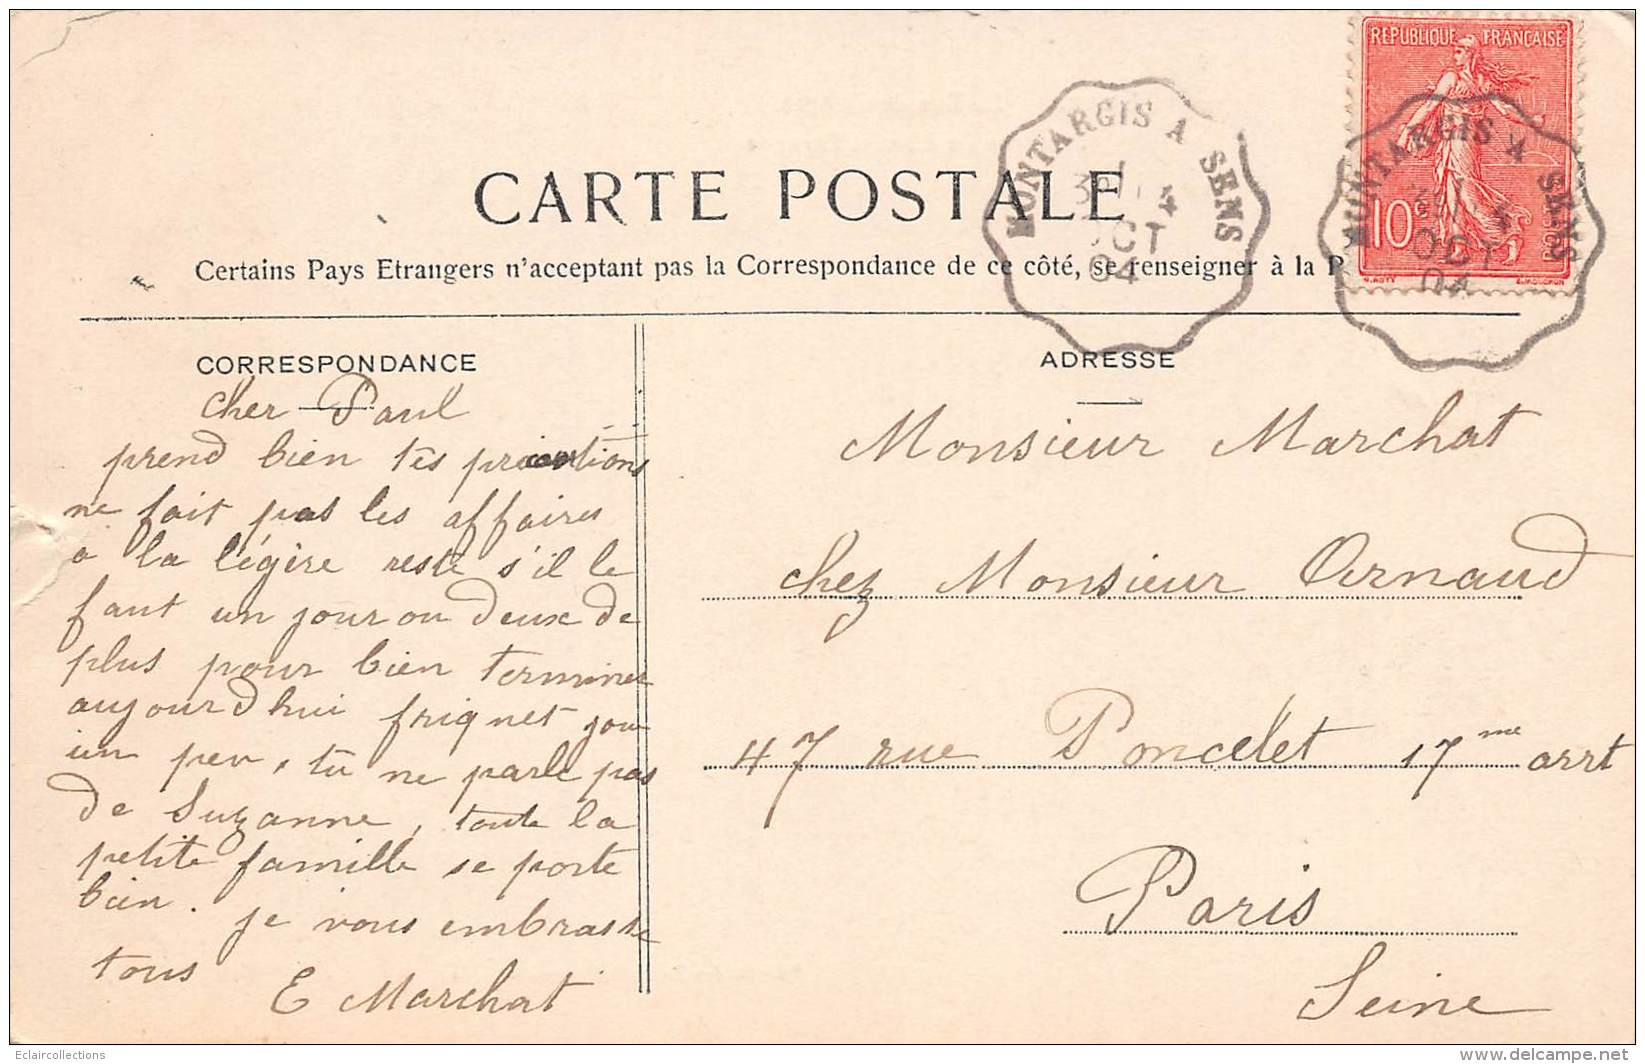 REPUBLIQUE FRANÇAISE
10c
MONTARGIS A SENS
OCT
04
MONTARGIS A SENS
OCT
04
CARTE POSTALE
Certains Pays Etrangers n'acceptant pas la Correspondance de ce côté, se renseigner à la P
CORRESPONDANCE
cher Paul
prend bien tes précautions
ne fait pas les affaires
a la légère reste s'il le
faut un jour ou deux de
plus pour bien terminer
aujourd'hui friquet joue
un peu, tu ne parle pas
de Suzanne, toute la
petite famille se porte
bien. je vous embrasse
tous
E Marchat
ADRESSE
Monsieur Marchat
chez Monsieur Arnaud
47 rue Poncelet 17me arrt
Paris
Seine
Eclaircollections
www.delcampe.net